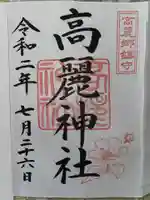 高麗郷鎮守
高麗神社
令和二年 七月二十六日